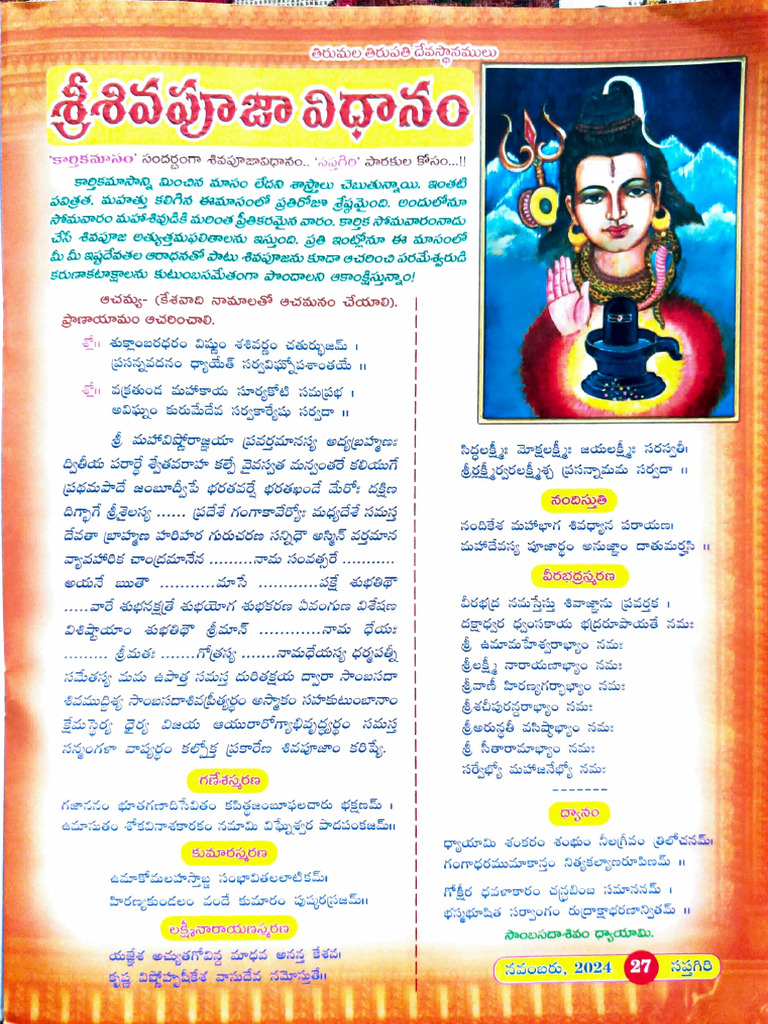 తిరుమల తిరుపతి దేవస్థానములు
శ్రీశివపూజా విధానం
'కార్తికమాసం' సందర్భంగా శివపూజావిధానం.. 'సప్తగిరి' పాఠకుల కోసం...!!
కార్తికమాసాన్ని మించిన మాసం లేదని శాస్త్రాలు చెబుతున్నాయి. ఇంతటి
పవిత్రత, మహత్తు కలిగిన ఈమాసంలో ప్రతిరోజూ శ్రేష్ఠమైంది. అందులోనూ
సోమవారం మహాశివుడికి మరింత ప్రీతికరమైన వారం. కార్తిక సోమవారంనాడు
చేసే శివపూజ అత్యుత్తమఫలితాలను ఇస్తుంది. ప్రతి ఇంట్లోనూ ఈ మాసంలో
మీ మీ ఇష్టదేవతల ఆరాధనతో పాటు శివపూజను కూడా ఆచరించి పరమేశ్వరుడి
కరుణాకటాక్షాలను కుటుంబసమేతంగా పొందాలని ఆకాంక్షిస్తున్నాం!
ఆచమ్య- (కేశవాది నామాలతో ఆచమనం చేయాలి).
ప్రాణాయామం ఆచరించాలి.
శ్లో॥ శుక్లాంబరధరం విష్ణుం శశివర్ణం చతుర్భుజమ్ ।
ప్రసన్నవదనం ధ్యాయేత్ సర్వవిఘ్నోపశాంతయే ॥
శ్లో॥ వక్రతుండ మహాకాయ సూర్యకోటి సమప్రభ ।
అవిఘ్నం కురుమేదేవ సర్వకార్యేషు సర్వదా ॥
శ్రీ మహావిష్ణోరాజ్ఞయా ప్రవర్తమానస్య అద్యబ్రహ్మణః
ద్వితీయ పరార్థే శ్వేతవరాహ కల్పే వైవస్వత మన్వంతరే కలియుగే
ప్రథమపాదే జంబూద్వీపే భరతవర్షే భరతఖండే మేరోః దక్షిణ
దిగ్భాగే శ్రీశైలస్య ...... ప్రదేశే గంగాకావేర్యోః మధ్యదేశే సమస్త
దేవతా బ్రాహ్మణ హరిహర గురుచరణ సన్నిధౌ అస్మిన్ వర్తమాన
వ్యావహారిక చాంద్రమానేన .........నామ సంవత్సరే ..........
అయనే ఋతౌ ...........మాసే ............పక్షే శుభతిథౌ
.....వారే శుభనక్షత్రే శుభయోగ శుభకరణ ఏవంగుణ విశేషణ
విశిష్టాయాం శుభతిథౌ శ్రీమాన్ ............నామ ధేయః
......... శ్రీమతః .......గోత్రస్య ........నామధేయస్య ధర్మపత్నీ
సమేతస్య మమ ఉపాత్త సమస్త దురితక్షయ ద్వారా సాంబసదా
శివముద్దిశ్య సాంబసదాశివప్రీత్యర్థం అస్మాకం సహకుటుంబానాం
క్షేమస్థైర్య ధైర్య విజయ ఆయురారోగ్యాభివృద్ధ్యర్థం సమస్త
సన్మంగళా వాప్యర్థం కల్పోక్త ప్రకారేణ శివపూజాం కరిష్యే.
గణేశస్మరణ
గజాననం భూతగణాదిసేవితం కపిత్థజంబూఫలచారు భక్షణమ్ ।
ఉమాసుతం శోకవినాశకారకం నమామి విఘ్నేశ్వర పాదపంకజమ్॥
కుమారస్మరణ
ఉమాకోమలహస్తాబ్జ సంభావితలలాటికమ్।
హిరణ్యకుండలం వందే కుమారం పుష్కరస్రజమ్॥
లక్ష్మీనారాయణస్మరణ
యజ్ఞేశ అచ్యుతగోవిన్ద మాధవ అనన్త కేశవ।
కృష్ణ విష్ణోహృషీకేశ వాసుదేవ నమోస్తుతే॥
సిద్ధలక్ష్మీః మోక్షలక్ష్మీః జయలక్ష్మీః సరస్వతీ।
శ్రీర్లక్ష్మీర్వరలక్ష్మీశ్చ ప్రసన్నామమ సర్వదా ॥
నందిస్తుతి
నందికేశ మహాభాగ శివధ్యాన పరాయణ।
మహాదేవస్య పూజార్థం అనుజ్ఞాం దాతుమర్హసి ॥
వీరభద్రస్మరణ
వీరభద్ర నమస్తేస్తు శివాజ్ఞాను ప్రవర్తక ।
దక్షాధ్వర ధ్వంసకాయ భద్రరూపాయతే నమః
శ్రీ ఉమామహేశ్వరాభ్యాం నమః
శ్రీలక్ష్మీ నారాయణాభ్యాం నమః
శ్రీవాణీ హిరణ్యగర్భాభ్యాం నమః
శ్రీశచీపురన్దరాభ్యాం నమః
శ్రీఅరున్ధతీ వసిష్ఠాభ్యాం నమః
శ్రీ సీతారామాభ్యాం నమః
సర్వేభ్యో మహాజనేభ్యో నమః
-------
ధ్యానం
ధ్యాయామి శంకరం శంభుం నీలగ్రీవం త్రిలోచనమ్।
గంగాధరముమాకాన్తం నిత్యకల్యాణరూపిణమ్ ॥
గోక్షీర ధవళాకారం చన్ద్రబింబ సమాననమ్ ।
భస్మభూషిత సర్వాంగం రుద్రాక్షాభరణాన్వితమ్ ॥
సాంబసదాశివం ధ్యాయామి.
నవంబరు, 2024 27 సప్తగిరి